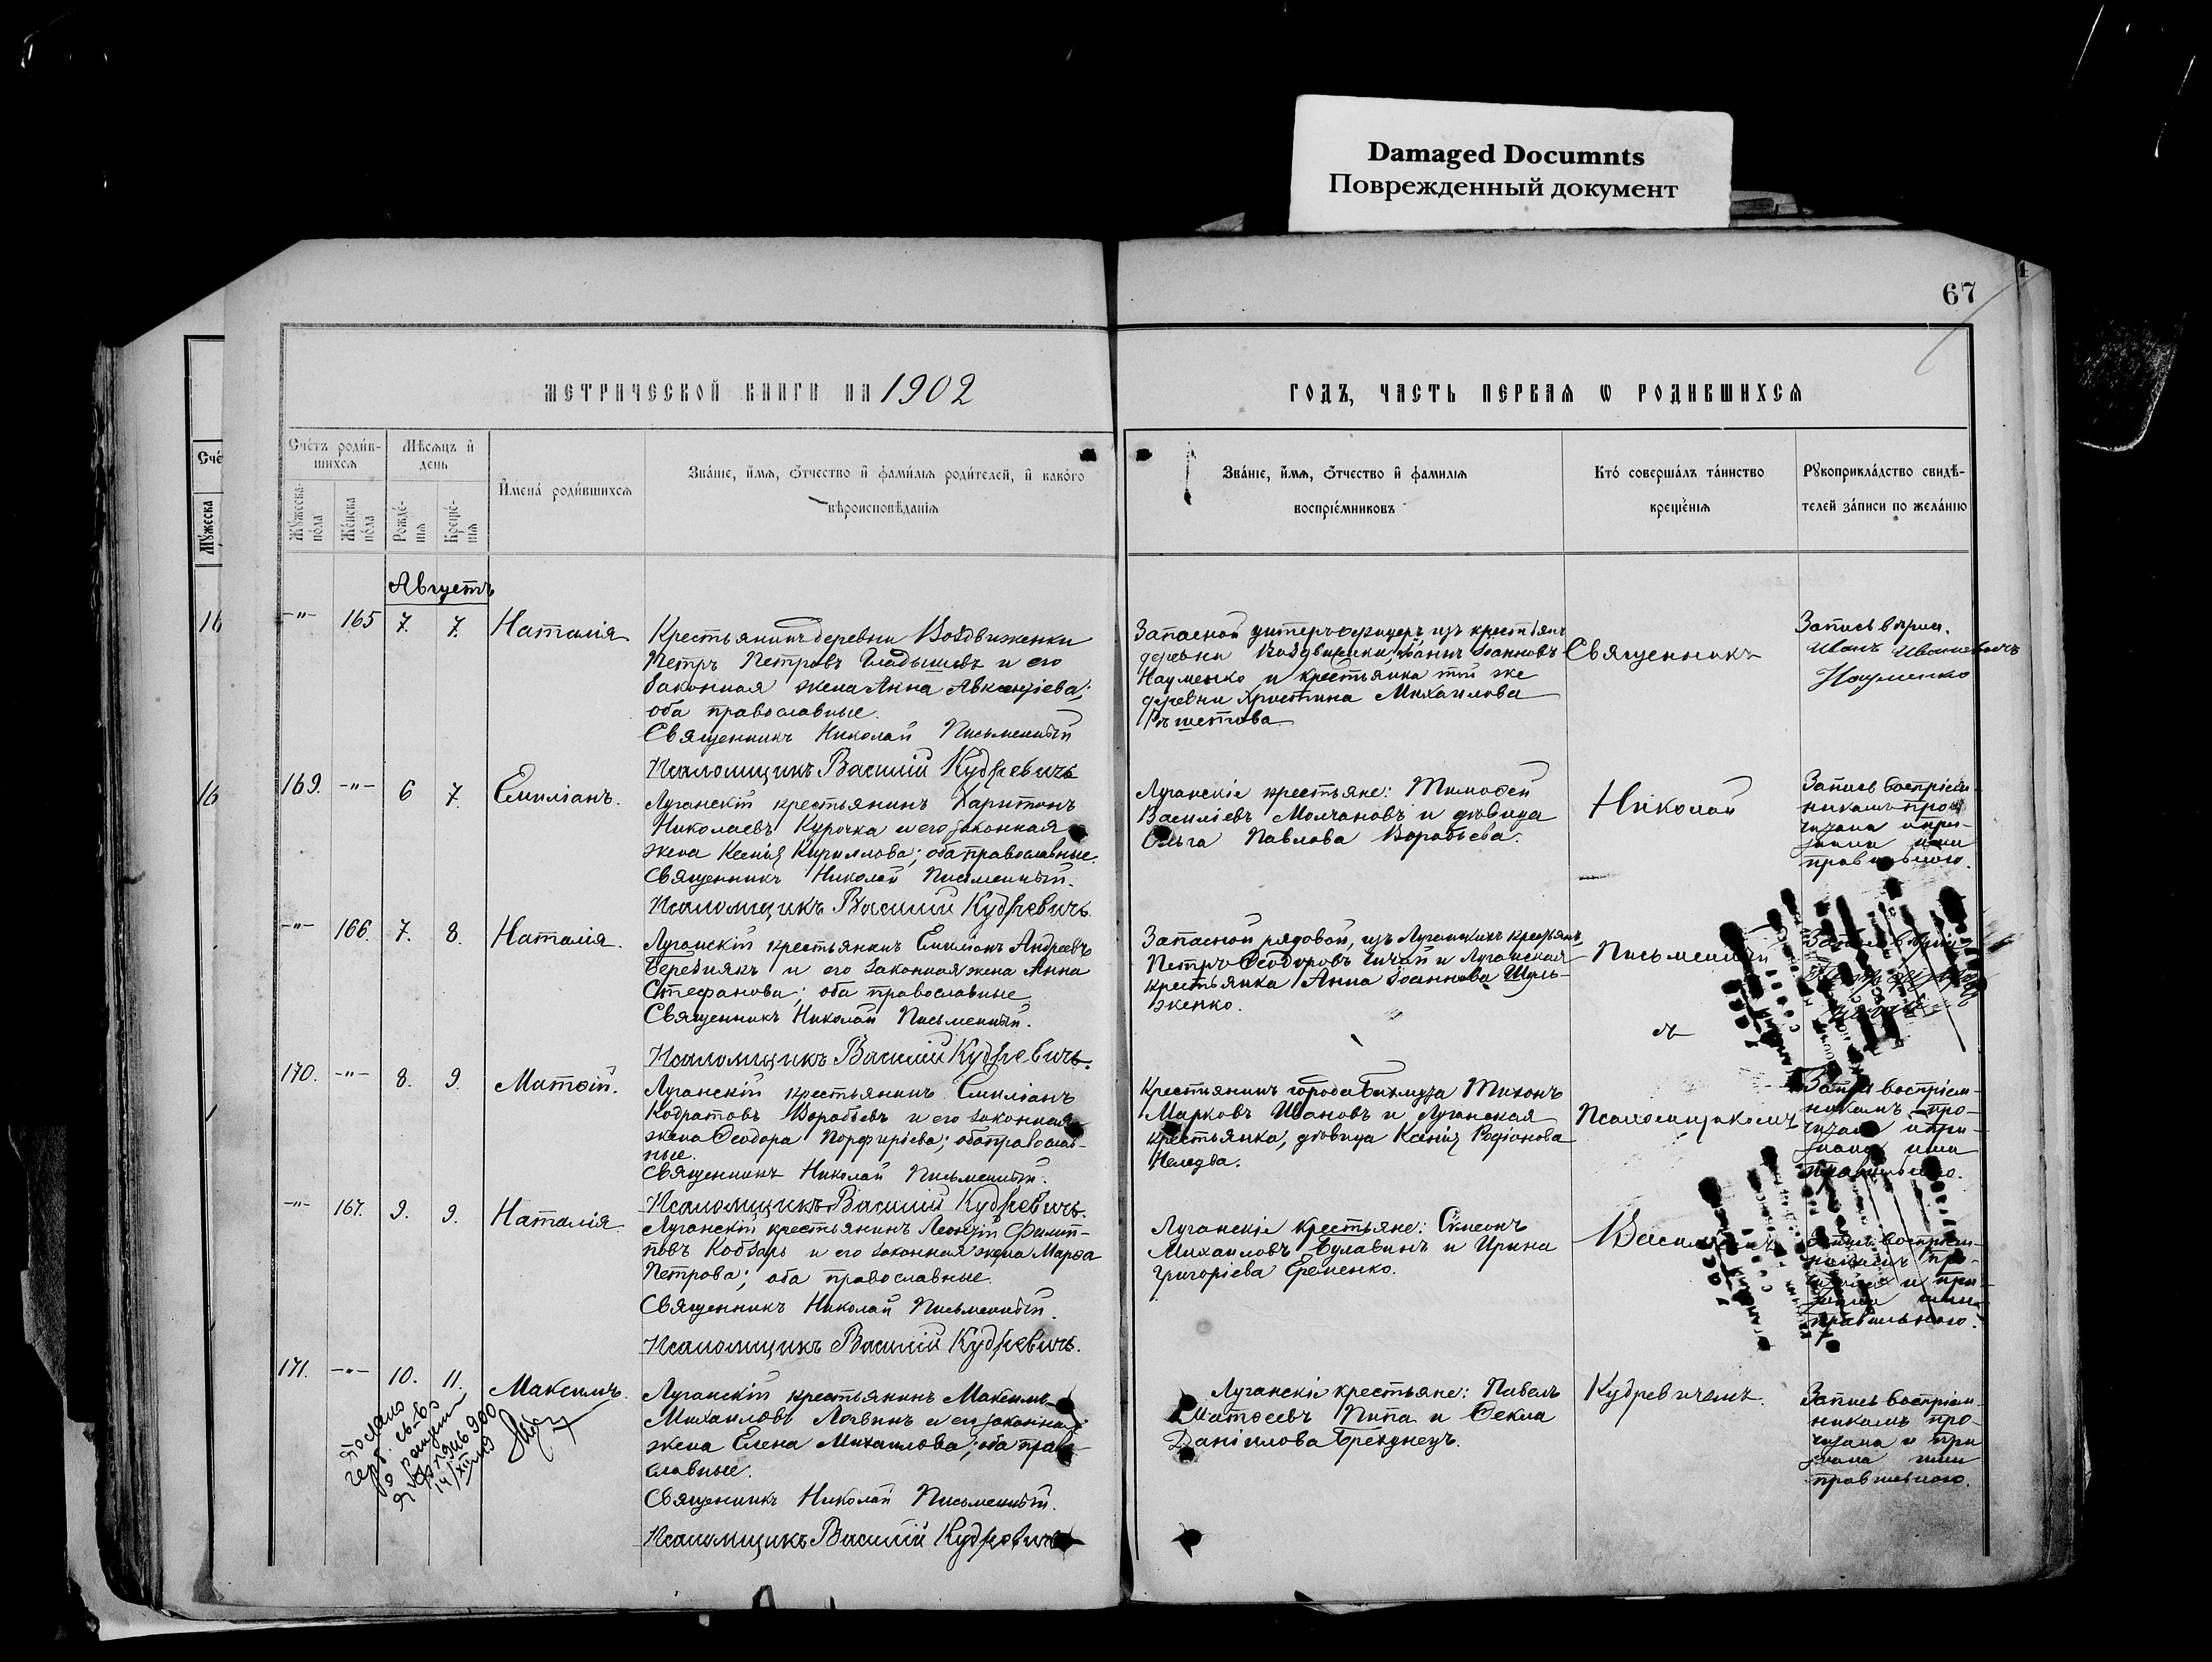 Damaged Documnts
Поврежденный документ
67
МЕТРИЧЕСКОЙ КНИГИ НА 1902
ГОДЪ, ЧАСТЬ ПЕРВАЯ Ѡ РОДИВШИХСѦ
Счётъ родив-
шихсѧ
Мужеска
пола
Женска
пола
Мѣсяцъ и
день
Рожде-
нїѧ
Креще-
нїѧ
Имена родившихсѧ
Званїе, имѧ, отчество и фамилїѧ родителей, и какого
вѣроисповѣданїѧ
Званїе, имѧ, отчество и фамилїѧ
воспрїемниковъ
Кто совершалъ таинство
крещенїѧ
Рукоприкладство свидѣ-
телей записи по желанїю
Августъ
-"- 165 7. 7. Наталія
Крестьянинъ деревни Воздвиженки
Петръ Петровъ Гладышевъ и его
законная жена Анна Авксентіева;
оба православные.
Священникъ Николай Письменный
Псаломщикъ Василій Кудревичъ
Запасной унтеръ-офицеръ изъ крестьянъ
деревни Воздвиженки, Іоаннъ Іоанновъ
Науменко и крестьянка той же
деревни Христина Михаилова
Рѣшетова.
Священникъ
Иванъ Ивановичъ
Науменко
169. -"- 6 7. Емиліанъ.
Луганскій крестьянинъ Харитонъ
Николаевъ Курочка и его законная
жена Ксенія Кириллова; оба православные.
Священникъ Николай Письменный.
Псаломщикъ Василій Кудревичъ.
Луганскіе крестьяне: Тимофей
Василіевъ Молчановъ и дѣвица
Ольга Павлова Воробьева.
Николай
Запись воспріем-
никамъ про-
читана и при-
знана ими
правильною.
-"- 166. 7. 8. Наталія.
Луганскій крестьянинъ Емиліанъ Андреевъ
Березнякъ и его законная жена Анна
Стефанова; оба православные
Священникъ Николай Письменный.
Псаломщикъ Василій Кудревичъ.
Запасной рядовой, изъ Луганскихъ крестьянъ,
Петръ Ѳеодоровъ и Луганская
крестьянка Анна Іоаннова Шуль-
женко.
Письменный
съ
170. -"- 8. 9. Матѳій.
Луганскій крестьянинъ Емиліанъ
Кодратовъ Воробьевъ и его законная
жена Ѳеодора Порфиріева; оба православ-
ные.
Священникъ Николай Письменный.
Псаломщикъ Василій Кудревичъ.
Крестьянинъ города Бахмута Тихонъ
Марковъ Ивановъ и Луганская
крестьянка, дѣвица Ксенія Родіонова
Псаломщикомъ
Запись воспріем-
никамъ про-
читана и при-
знана ими
правильною.
-"- 167. 9. 9. Наталія
Луганскій крестьянинъ Леонтій Филип-
повъ Кобзарь и его законная жена Марѳа
Петрова; оба православные.
Священникъ Николай Письменный.
Псаломщикъ Василій Кудревичъ.
Луганскіе крестьяне: Симеонъ
Михаиловъ Булавинъ и Ирина
Григоріева Еременко.
Василіемъ
Запись воспріем-
никамъ про-
читана и при-
знана ими
правильною.
171. -"- 10. 11. Максимъ.
Луганскій крестьянинъ Максимъ
Михаиловъ Логвинъ и его законная
жена Елена Михаилова; оба право-
славные.
Священникъ Николай Письменный.
Псаломщикъ Василій Кудревичъ
Луганскіе крестьяне: Павелъ
Матѳеевъ Пипа и Ѳекла
Даніилова Брехунецъ.
Кудревичемъ.
Запись воспріем-
никамъ про-
читана и при
знана ими
правильною.